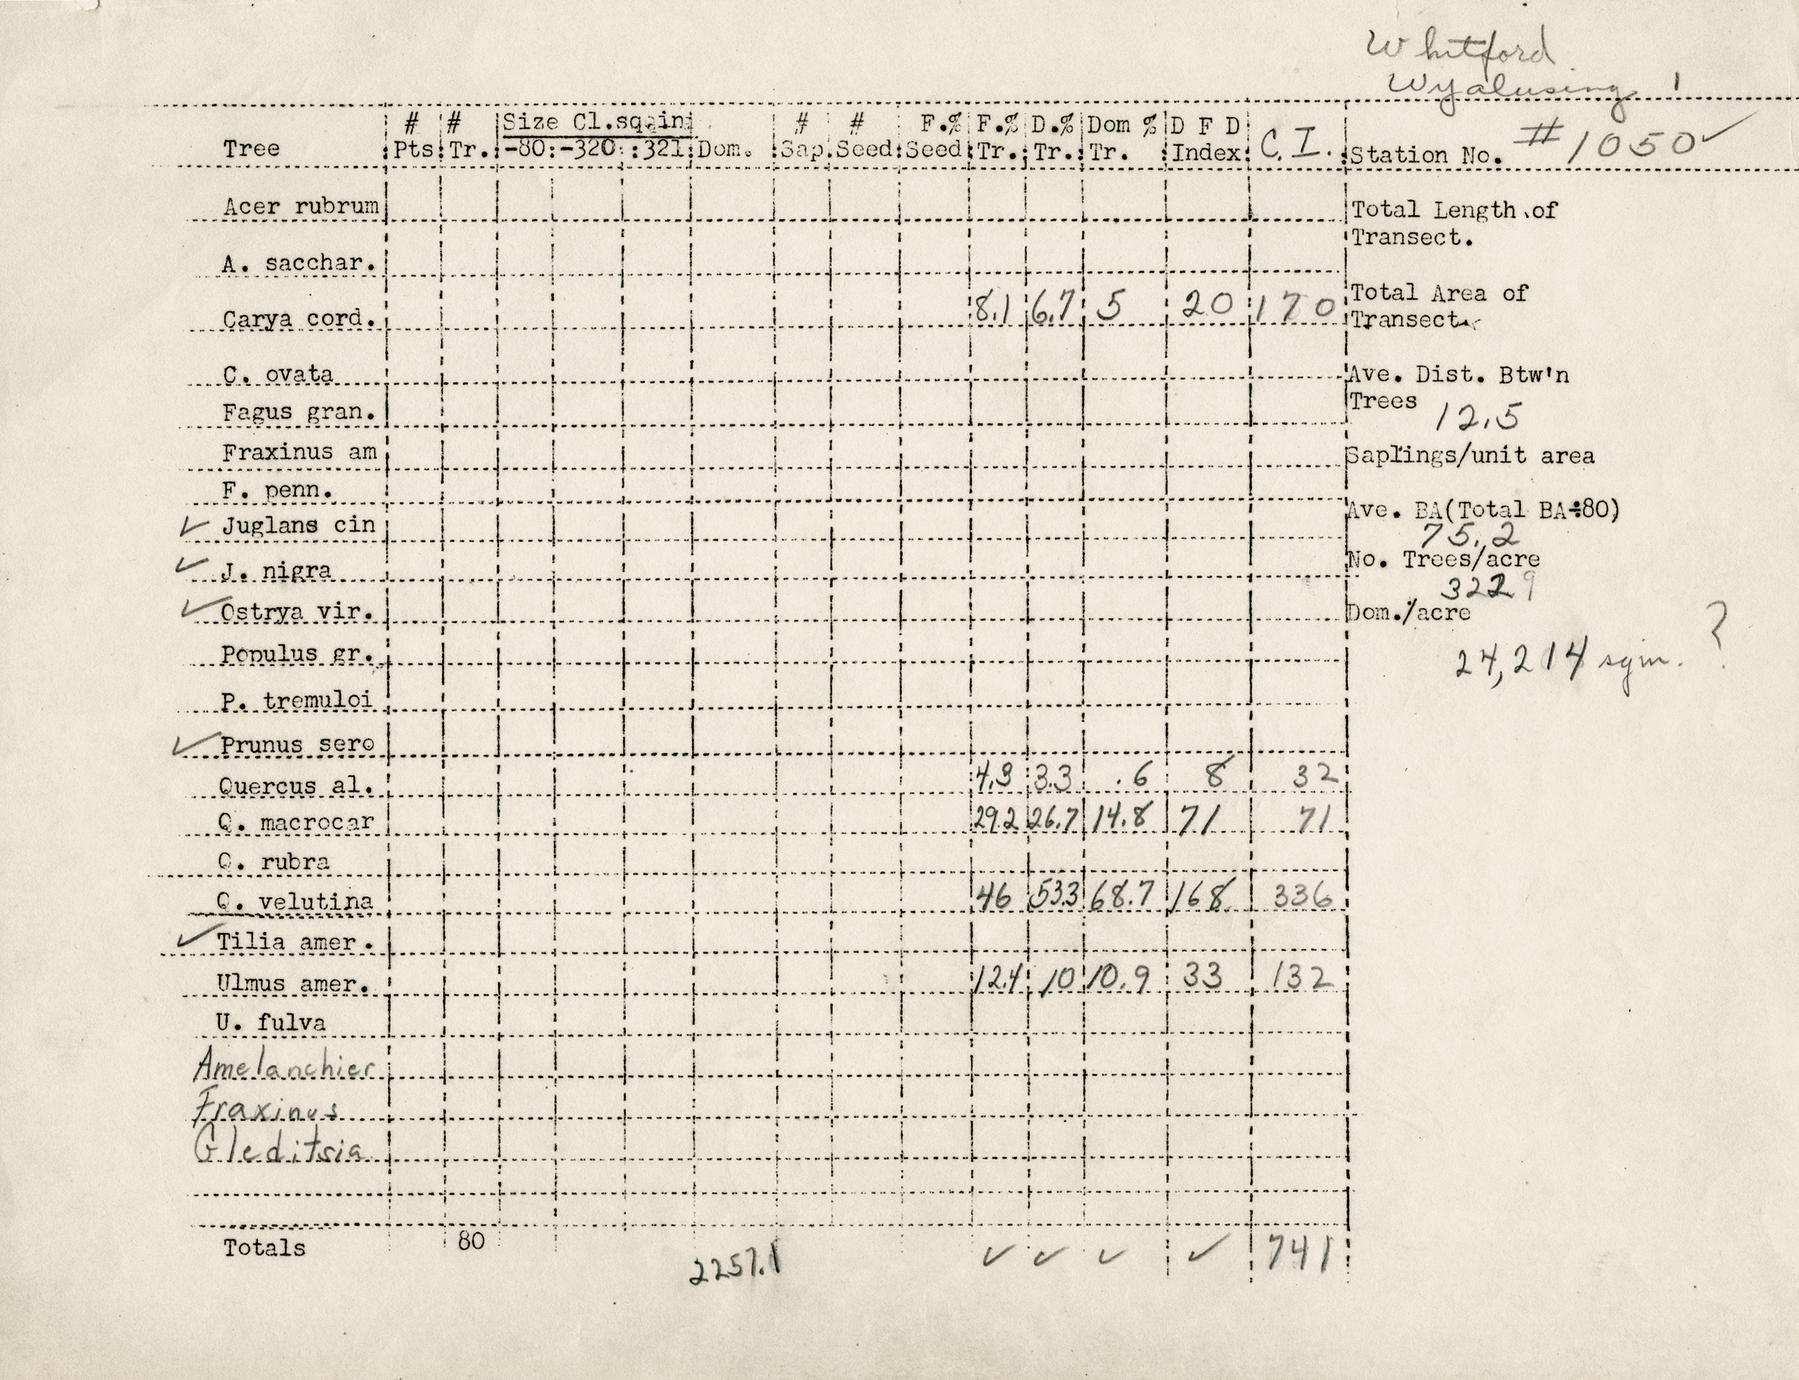 Whitford
Wyalusing 1
# # Size Cl.sqain # # F.% F.% D.% Dom % D F D
Tree Pts Tr. -80 -320 321 Dom. Sap. Seed Seed Tr. Tr. Tr. Index C.I. Station No. #1050 ✓
Acer rubrum Total Length of
Transect.
A. sacchar.
Total Area of
Carya cord. 8.1 6.7 5 20 170 Transect.
C. ovata Ave. Dist. Btw'n
Trees 12.5
Fagus gran.
Fraxinus am Saplings/unit area
F. penn.
Ave. BA(Total BA÷80)
✓ Juglans cin 75.2
No. Trees/acre
✓ J. nigra 3229
✓ Ostrya vir. Dom./acre
Populus gr. 24,214 sqin. ?
P. tremuloi
✓ Prunus sero
Quercus al. 4.3 3.3 .6 8 32
Q. macrocar 29.2 26.7 14.8 71 71
Q. rubra
Q. velutina 46 53.3 68.7 168 336
✓ Tilia amer.
Ulmus amer. 12.4 10 10.9 33 132
U. fulva
Amelanchier
Fraxinus
Gleditsia
Totals 80 2257.1 ✓ ✓ ✓ ✓ 741